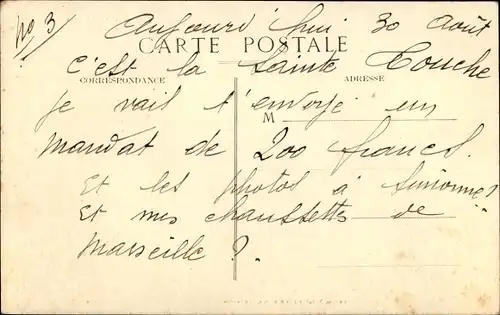 No 3
Aujourd'hui 30 Août
CARTE POSTALE
C'est la Sainte Touche
CORRESPONDANCE
ADRESSE
je vais t'envoyé un
M
mandat de 200 francs.
Et les photos à Simonne?
Et mes chaussettes de
Marseille?